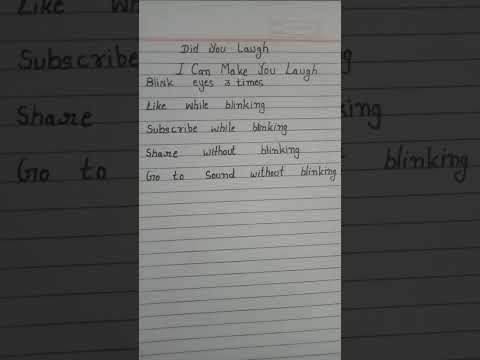 Did You Laugh
I Can Make You Laugh
Blink eyes 3 times
Like while blinking
Subscribe while blinking
Share without blinking
Go to Sound without blinking